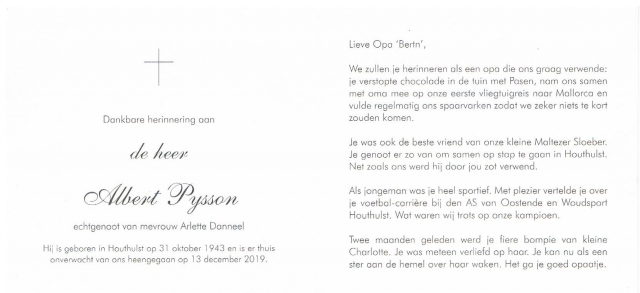 Dankbare herinnering aan
de heer
Albert Pysson
echtgenoot van mevrouw Arlette Danneel
Hij is geboren in Houthulst op 31 oktober 1943 en is er thuis
onverwacht van ons heengegaan op 13 december 2019.
Lieve Opa 'Bertn',
We zullen je herinneren als een opa die ons graag verwende:
je verstopte chocolade in de tuin met Pasen, nam ons samen
met oma mee op onze eerste vliegtuigreis naar Mallorca en
vulde regelmatig ons spaarvarken zodat we zeker niets te kort
zouden komen.
Je was ook de beste vriend van onze kleine Maltezer Sloeber.
Je genoot er zo van om samen op stap te gaan in Houthulst.
Net zoals ons werd hij door jou zot verwend.
Als jongeman was je heel sportief. Met plezier vertelde je over
je voetbal-carrière bij den AS van Oostende en Woudsport
Houthulst. Wat waren wij trots op onze kampioen.
Twee maanden geleden werd je fiere bompie van kleine
Charlotte. Je was meteen verliefd op haar. Je kan nu als een
ster aan de hemel over haar waken. Het ga je goed opaatje.